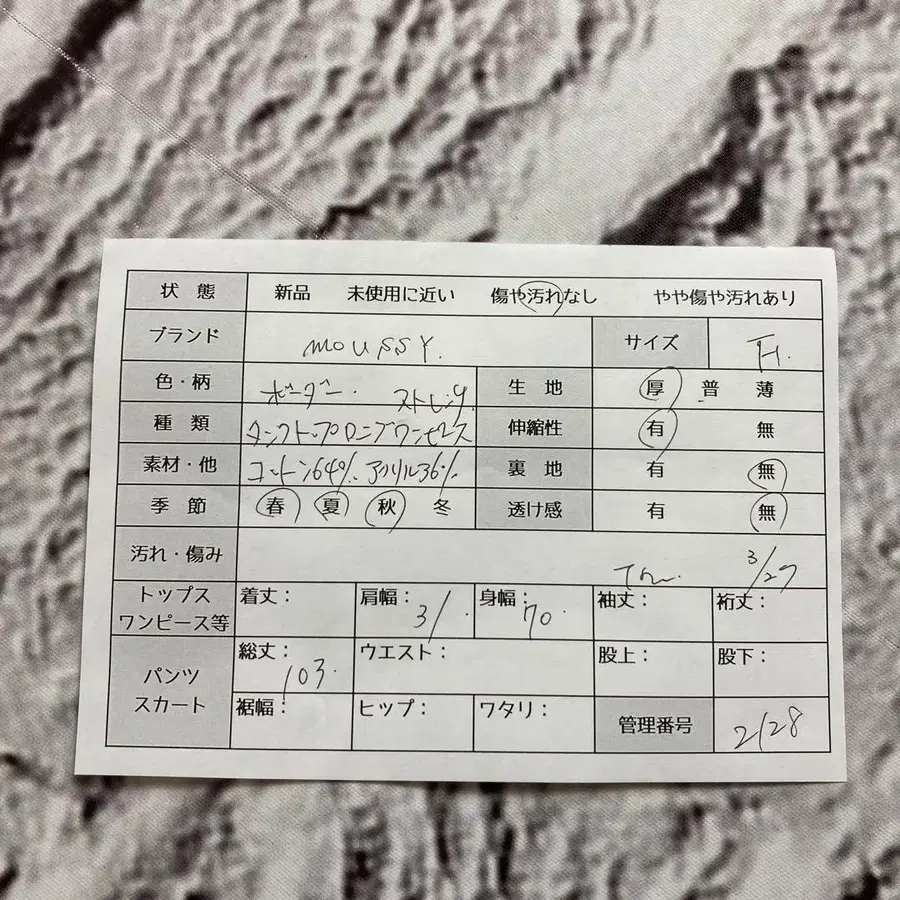 状態 新品 未使用に近い 傷や汚れなし やや傷や汚れあり
ブランド moussy. サイズ F.
色・柄 ボーダー. 生地 厚 普 薄
種類 タンクトップロングワンピース 伸縮性 有 無
素材・他 コットン64%. アクリル36%. 裏地 有 無
季節 春 夏 秋 冬 透け感 有 無
汚れ・傷み 3/27
トップス ワンピース等 着丈: 肩幅: 31. 身幅: 70. 袖丈: 裄丈:
パンツ スカート 総丈: 103. ウエスト: 股上: 股下:
裾幅: ヒップ: ワタリ: 管理番号 2128